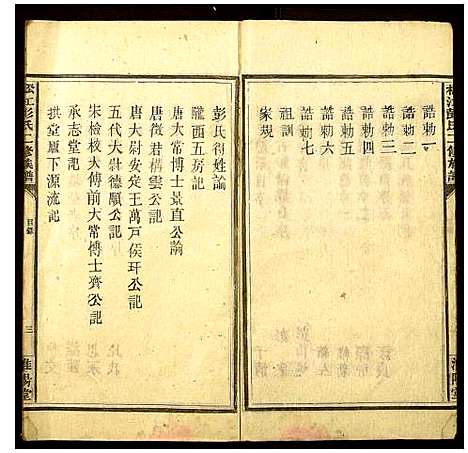 誥勅一
誥勅二
誥勅三
誥勅四
誥勅五
誥勅六
誥勅七
家規
彭氏得姓論
隴西五房記
唐大常博士景直公論
唐徵君構雲公記
唐大尉安定王萬戸侯玕公記
五代大尉德顒公記
宋檢校大傅前大常博士齊公記
承志堂記
拱堂廈下源流記
松江彭氏二修族譜
目錄
三
淮陽堂